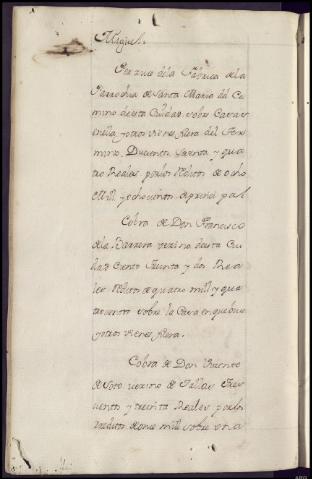 Miguel.
de la Fabrica de la
Parrochia de Santa Maria del Ca
mino de esta Ciudad sobre Casas
y otros vienes fuera del Ter
mino, Ducientos sesenta y qua
tro Reales por los Reditos de ocho
Mill y ochocientos de prinzipal
Cobra de Don Francisco
de la Barrera vezino de esta Ciu
dad Ciento Treinta y dos Rea
les Reditos de quatro mill y qua
trocientos sobre la Casa en que bibe
y otros vienes fuera.
Cobra de Don Vicente
de Soto vezino de Tres
cientos y treinta Reales por los
Reditos de once mill sobre una